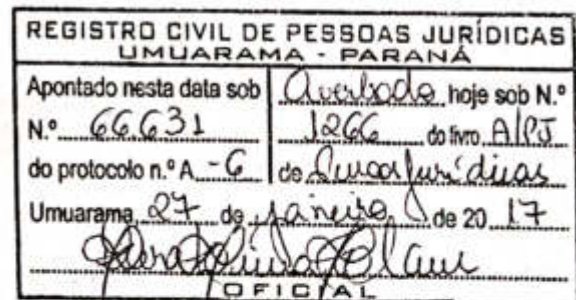 REGISTRO CIVIL DE PESSOAS JURÍDICAS
UMUARAMA - PARANÁ
Apontado nesta data sob
N.º 66.631
do protocolo n.º A - 6
Averbado hoje sob N.º
1266 do livro A/PJ
de Jurídicas
Umuarama, 27 de janeiro de 20 17
OFICIAL